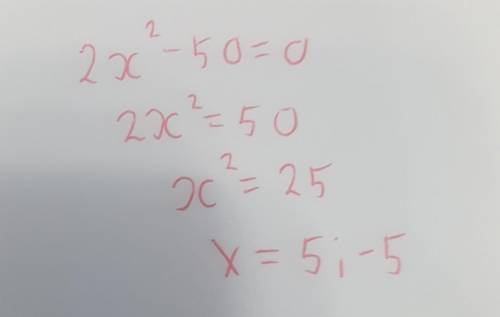 2x² - 50 = 0
2x² = 50
x² = 25
x = 5; -5